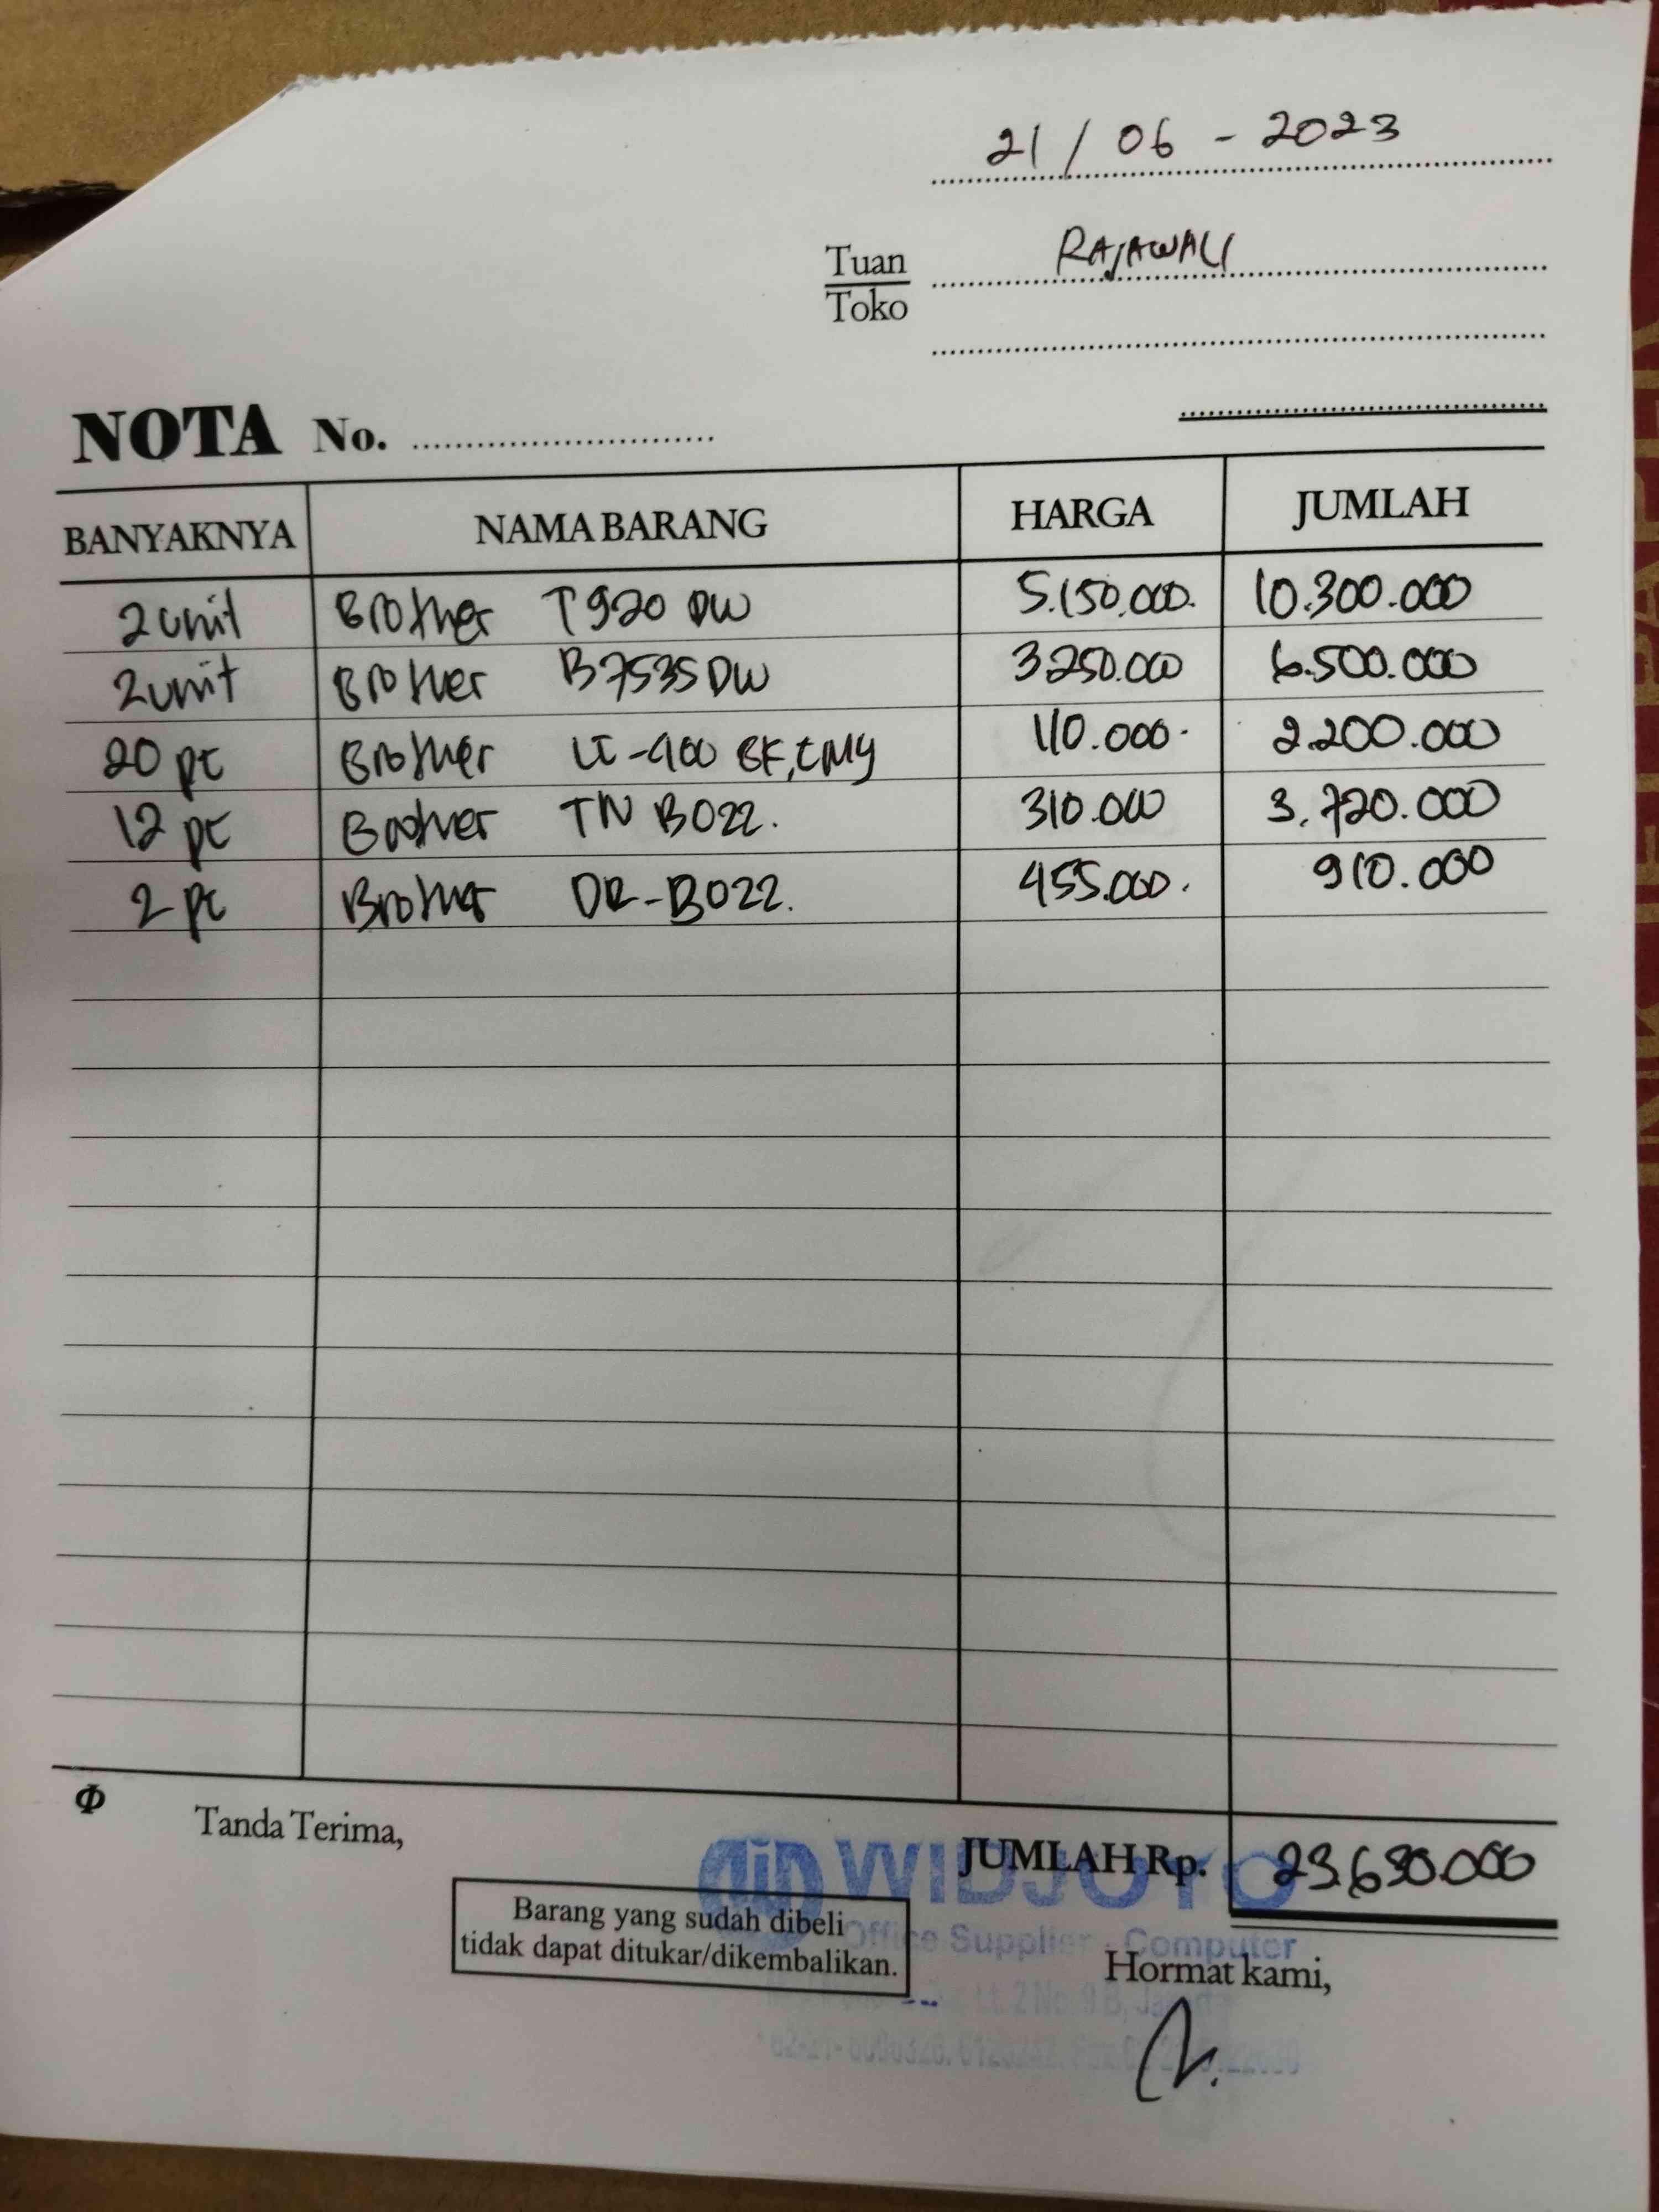 21 / 06 - 2023
Tuan RAJAWALI
Toko
NOTA No.
BANYAKNYA NAMA BARANG HARGA JUMLAH
2 unit Brother T920 DW 5.150.000. 10.300.000
2 unit Brother B7535 DW 3.250.000 6.500.000
20 pc Brother 110.000. 2.200.000
12 pc Brother TN B022. 310.000 3.720.000
2 pc Brother DR-B022. 455.000. 910.000
Tanda Terima,
JUMLAH Rp. 23.630.000
WIDJOYO
Office Supplier - Computer
Barang yang sudah dibeli
tidak dapat ditukar/dikembalikan.
Hormat kami,
Lt. 2 No. 9 B,